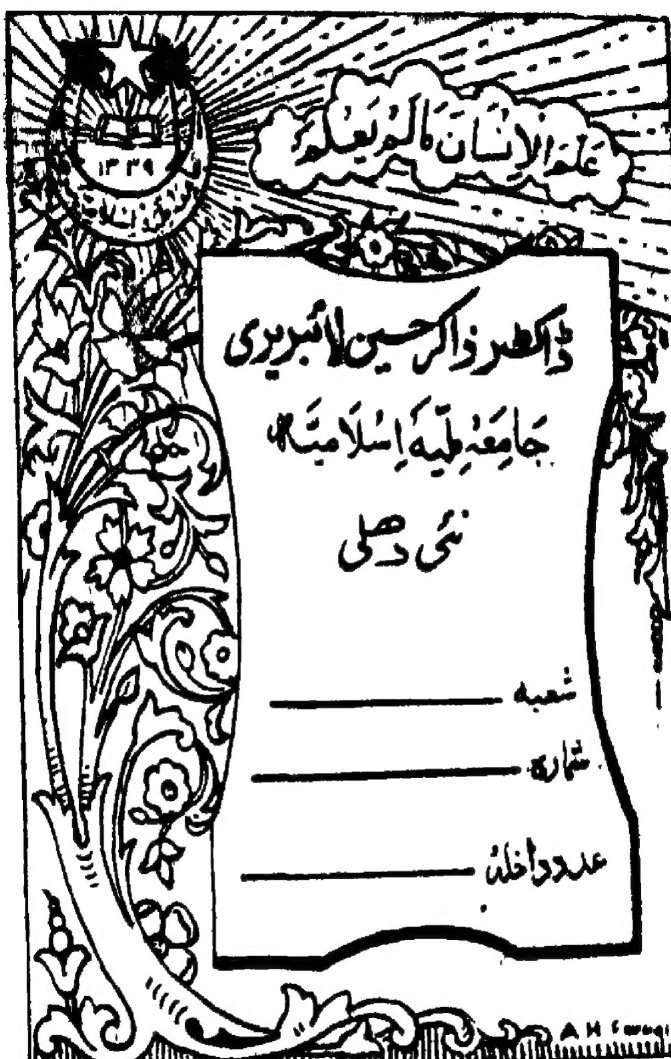 عَلَّمَ الْإِنْسَانَ مَا لَمْ يَعْلَمْ
۱۳۳۹
ڈاکٹر ذاکر حسین لائبریری
جَامِعَہ مِلّیہ اِسْلَامیَّہ
نئی دھلی
شعبہ
شمارہ
عدد داخلہ
A H